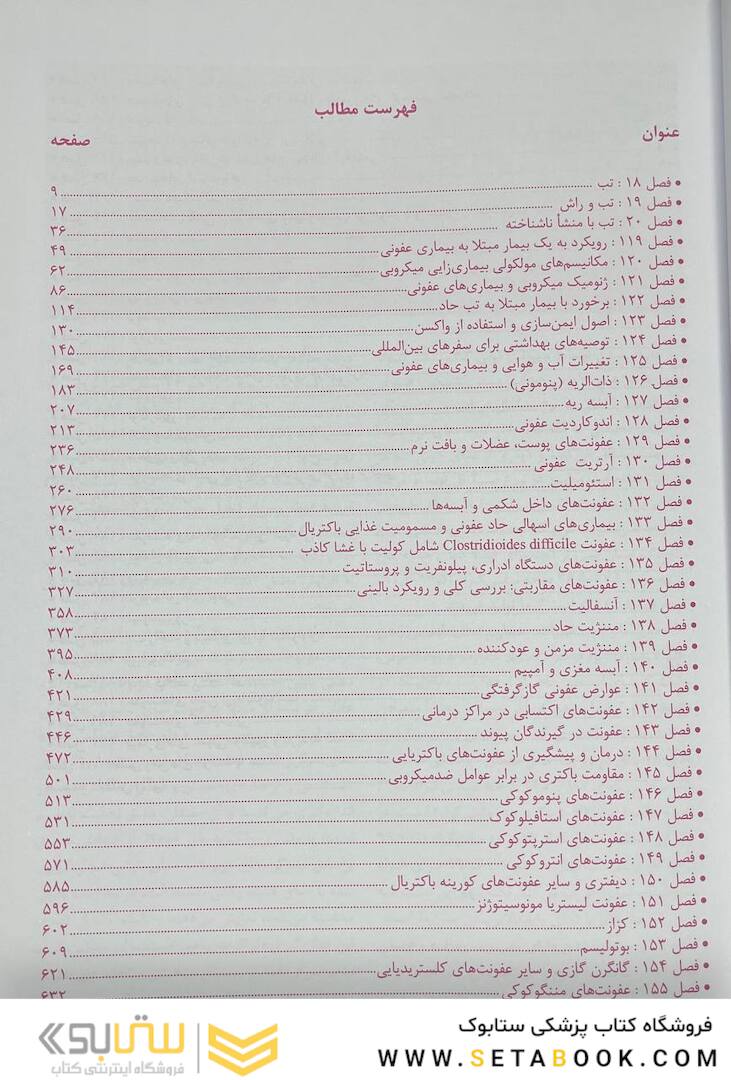 فهرست مطالب
عنوان صفحه
• فصل ۱۸ : تب ........ ۹
• فصل ۱۹ : تب و راش ........ ۱۷
• فصل ۲۰ : تب با منشأ ناشناخته ........ ۳۶
• فصل ۱۱۹ : رویکرد به یک بیمار مبتلا به بیماری عفونی ........ ۴۹
• فصل ۱۲۰ : مکانیسم‌های مولکولی بیماری‌زایی میکروبی ........ ۶۲
• فصل ۱۲۱ : ژنومیک میکروبی و بیماری‌های عفونی ........ ۸۶
• فصل ۱۲۲ : برخورد با بیمار مبتلا به تب حاد ........ ۱۱۴
• فصل ۱۲۳ : اصول ایمن‌سازی و استفاده از واکسن ........ ۱۳۰
• فصل ۱۲۴ : توصیه‌های بهداشتی برای سفرهای بین‌المللی ........ ۱۴۵
• فصل ۱۲۵ : تغییرات آب و هوایی و بیماری‌های عفونی ........ ۱۶۹
• فصل ۱۲۶ : ذات‌الریه (پنومونی) ........ ۱۸۳
• فصل ۱۲۷ : آبسه ریه ........ ۲۰۷
• فصل ۱۲۸ : اندوکاردیت عفونی ........ ۲۱۳
• فصل ۱۲۹ : عفونت‌های پوست، عضلات و بافت نرم ........ ۲۳۶
• فصل ۱۳۰ : آرتریت عفونی ........ ۲۴۸
• فصل ۱۳۱ : استئومیلیت ........ ۲۶۰
• فصل ۱۳۲ : عفونت‌های داخل شکمی و آبسه‌ها ........ ۲۷۶
• فصل ۱۳۳ : بیماری‌های اسهالی حاد عفونی و مسمومیت غذایی باکتریال ........ ۲۹۰
• فصل ۱۳۴ : عفونت Clostridioides difficile شامل کولیت با غشا کاذب ........ ۳۰۳
• فصل ۱۳۵ : عفونت‌های دستگاه ادراری، پیلونفریت و پروستاتیت ........ ۳۱۰
• فصل ۱۳۶ : عفونت‌های مقاربتی: بررسی کلی و رویکرد بالینی ........ ۳۲۷
• فصل ۱۳۷ : آنسفالیت ........ ۳۵۸
• فصل ۱۳۸ : مننژیت حاد ........ ۳۷۳
• فصل ۱۳۹ : مننژیت مزمن و عودکننده ........ ۳۹۵
• فصل ۱۴۰ : آبسه مغزی و آمپیم ........ ۴۰۸
• فصل ۱۴۱ : عوارض عفونی گازگرفتگی ........ ۴۲۱
• فصل ۱۴۲ : عفونت‌های اکتسابی در مراکز درمانی ........ ۴۲۹
• فصل ۱۴۳ : عفونت در گیرندگان پیوند ........ ۴۴۶
• فصل ۱۴۴ : درمان و پیشگیری از عفونت‌های باکتریایی ........ ۴۷۲
• فصل ۱۴۵ : مقاومت باکتری در برابر عوامل ضدمیکروبی ........ ۵۰۱
• فصل ۱۴۶ : عفونت‌های پنوموکوکی ........ ۵۱۳
• فصل ۱۴۷ : عفونت‌های استافیلوکوک ........ ۵۳۱
• فصل ۱۴۸ : عفونت‌های استرپتوکوکی ........ ۵۵۳
• فصل ۱۴۹ : عفونت‌های انتروکوکی ........ ۵۷۱
• فصل ۱۵۰ : دیفتری و سایر عفونت‌های کورینه باکتریال ........ ۵۸۵
• فصل ۱۵۱ : عفونت لیستریا مونوسیتوژنز ........ ۵۹۶
• فصل ۱۵۲ : کزاز ........ ۶۰۲
• فصل ۱۵۳ : بوتولیسم ........ ۶۰۹
• فصل ۱۵۴ : گانگرن گازی و سایر عفونت‌های کلستریدیایی ........ ۶۲۱
• فصل ۱۵۵ : عفونت‌های مننگوکوکی ........ ۶۳۲
فروشگاه کتاب پزشکی ستابوک
WWW.SETABOOK.COM
ستابوک
فروشگاه اینترنتی کتاب